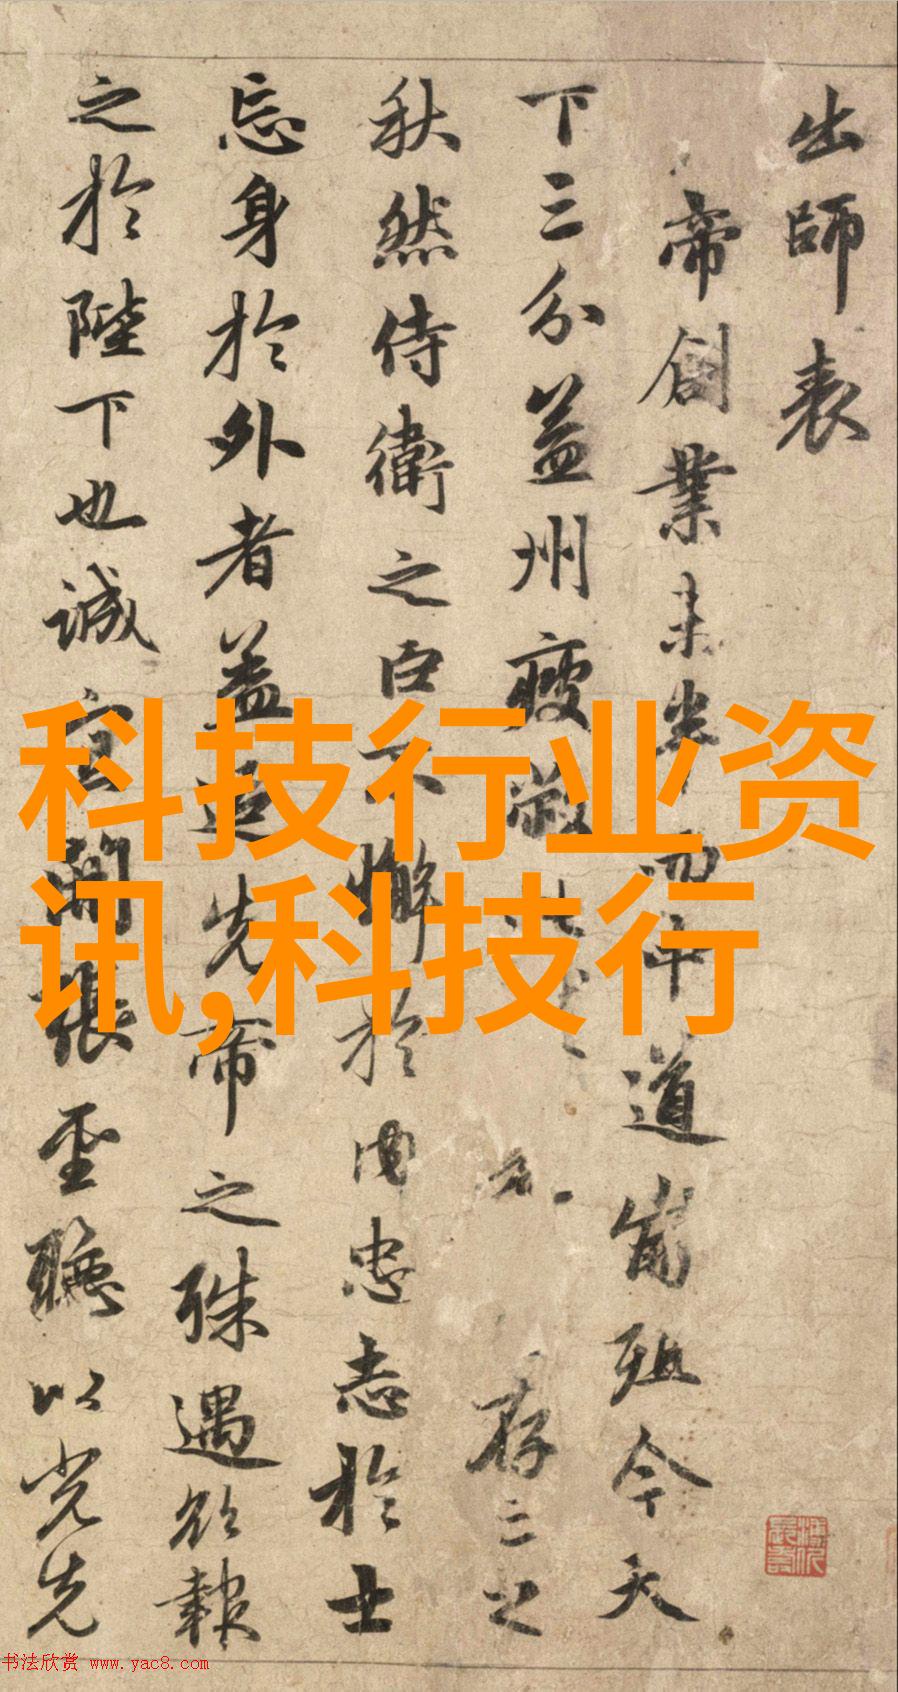 出師表
帝創業未半而中道崩殂今天
下三分益州疲敝存之
秋然侍衛之臣不懈於内忠志於士
忘身於外者益追先帝之殊遇欲報
之於陛下也誠宜開張聖聽以光先
科技行业资
讯,科技行
书法欣赏 www.yac8.com